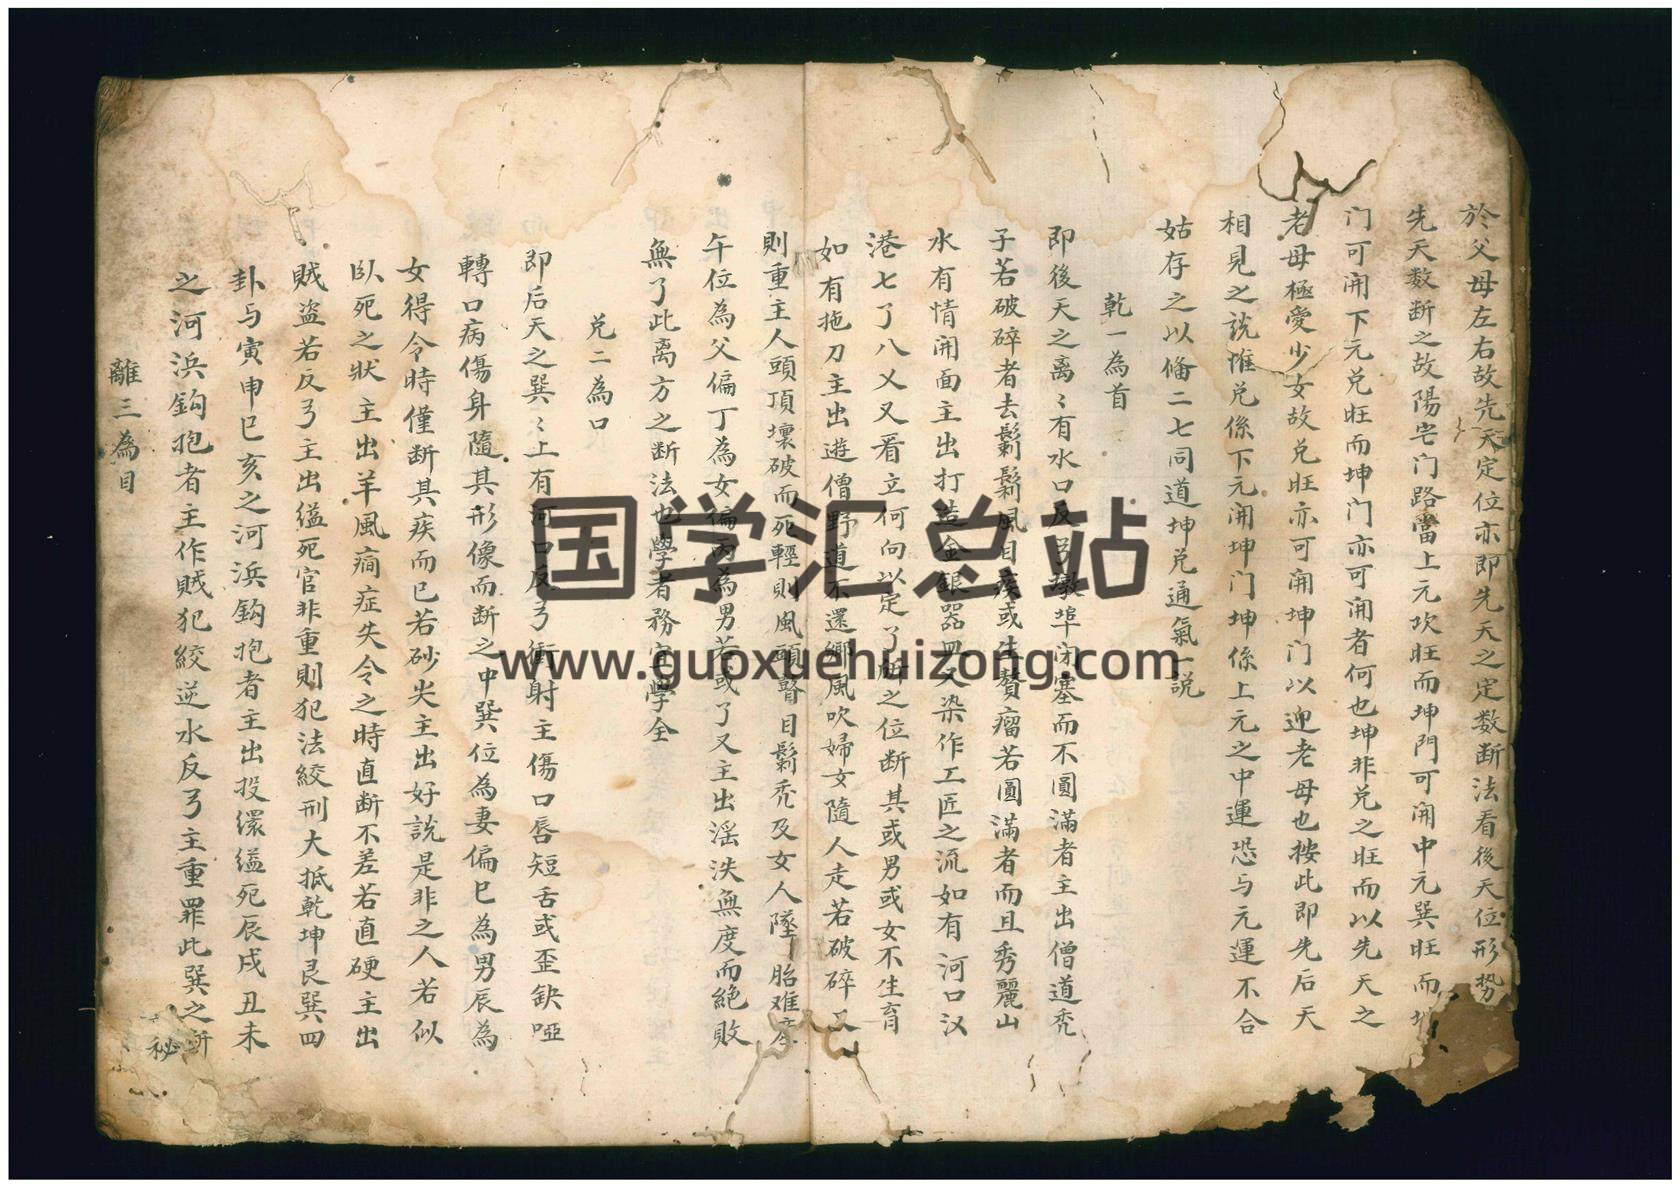 於父母左右故先天定位亦即先天之定数断法看後天位形势
先天数断之故陽宅门路當上元坎旺而坤門可開中元巽旺而
门可開下元兑旺而坤门亦可開者何也坤非兑之旺而以先天之
老母極愛少女故兑旺亦可開坤门以迎老母也按此即先后天
相見之説惟兑係下元開坤门坤係上元之中運恐与元運不合
姑存之以俻二七同道坤兑通氣一説
乾一為首
即後天之离〻有水口反弓墩埠闭塞而不圓滿者主出僧道秃
子若破碎者去鬎鬁風目疾或生贅瘤若圓滿者而且秀麗山
水有情開面主出打造金銀器皿又染作工匠之流如有河口汊
港七了八乂又看立何向以定了所之位断其或男或女不生育
如有拖刀主出逰僧野道不還鄉風吹婦女隨人走若破碎又
則重主人頭頂壞破而死輕則風頭瞽目鬎秃及女人墜胎难產
午位為父偏丁為女偏丙為男若或了又主出淫泆無度而絶敗
無了此离方之断法也學者務宜學全
兑二為口
即后天之巽〻上有河口反弓衝射主傷口唇短舌或歪缺啞
轉口病傷身隨其形像而断之中巽位為妻偏巳為男辰為
女得令時僅断其疾而已若砂尖主出好説是非之人若似
臥死之狀主出羊風癇症失令之時直断不差若直硬主出
賊盗若反弓主出缢死官非重則犯法絞刑大抵乾坤艮巽四
卦与寅申巳亥之河浜鈎抱者主出投繯缢死辰戌丑未
之河浜鈎抱者主作賊犯絞逆水反弓主重罪此巽之断
秘
離三為目
国学汇总站
www.guoxuehuizong.com